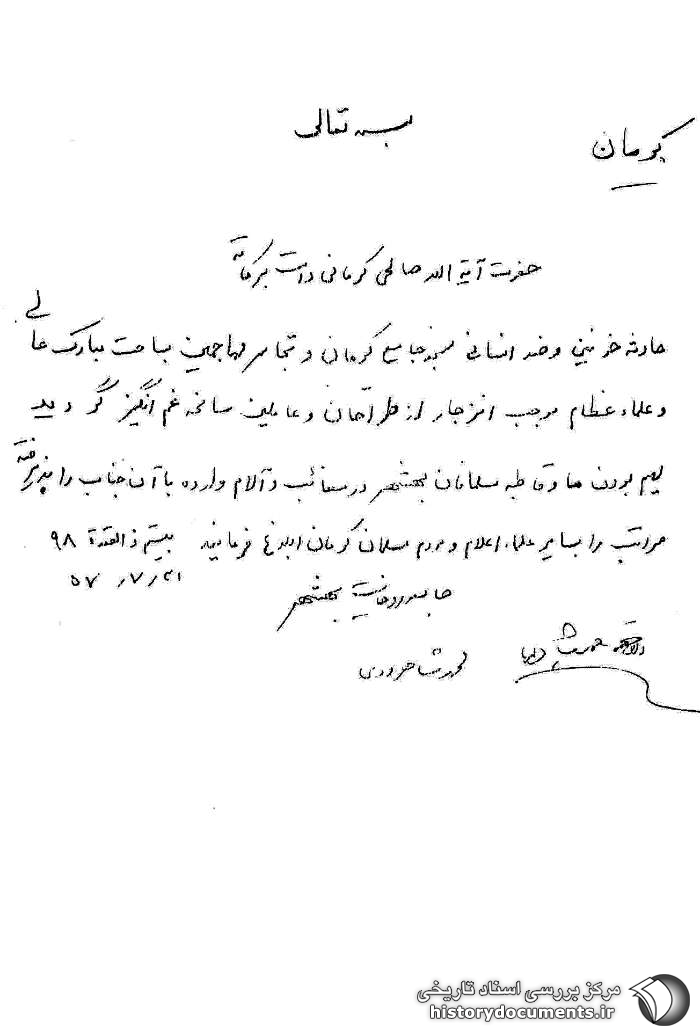 بسمه تعالی
کرمان
حضرت آیة الله صالحی کرمانی دامت برکاته
حادثه خونین و ضد انسانی مسجد جامع کرمان و تجاسر مهاجمین بساحت مبارک عالی
و علماء عظام موجب انزجار از طراحان و عاملین سانحه غم انگیز گردید
سهیم بودن ما و قاطبه مسلمانان بهشهر در مصائب و آلام وارده با آن جناب را پذیرفته
مراتب را بسایر علماء اعلام و مردم مسلمان کرمان ابلاغ فرمائید بیستم ذالقعدة ۹۸
۵۷/۷/۳۱
جامعه روحانیت بهشهر
محمد شاهرودی
مرکز بررسی اسناد تاریخی
historydocuments.ir